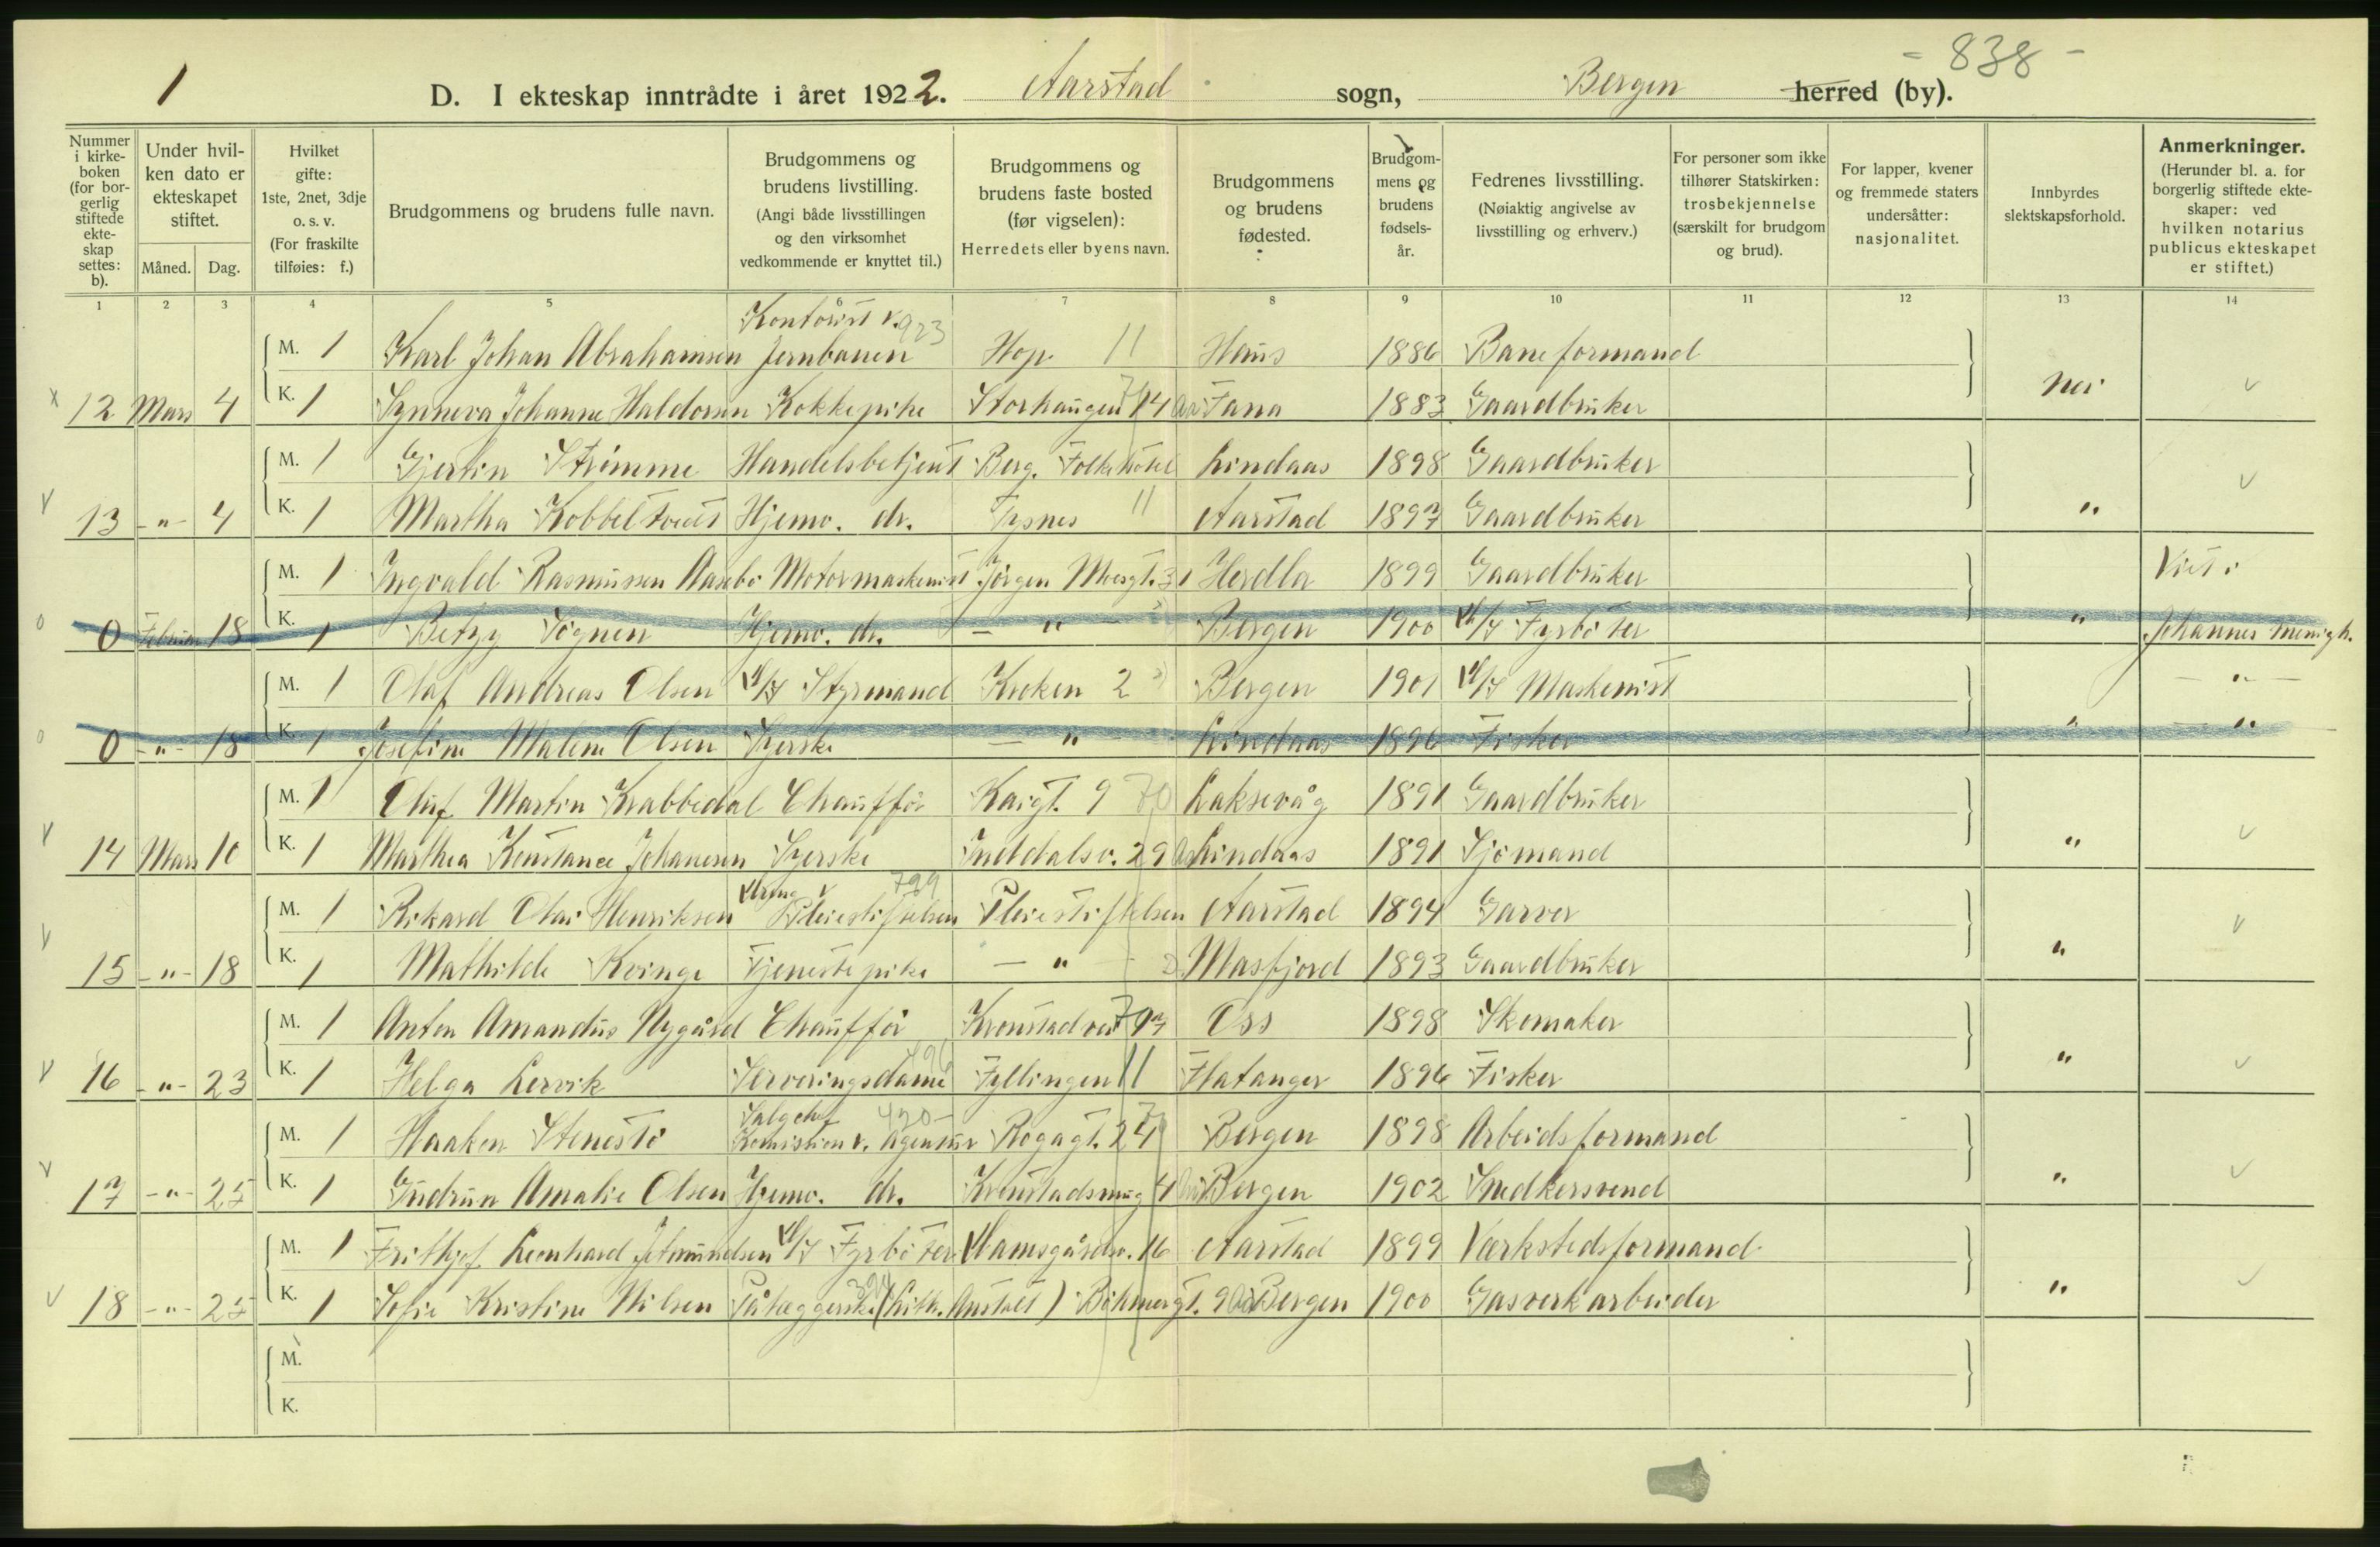 1
D. I ekteskap inntrådte i året 1922. Aarstad sogn, Bergen herred (by). - 838 -
Nummer i kirkeboken (for borgerlig stiftede ekteskap settes: b).
Under hvilken dato er ekteskapet stiftet.
Måned. Dag.
Hvilket gifte: 1ste, 2net, 3dje o. s. v. (For fraskilte tilføies: f.)
Brudgommens og brudens fulle navn.
Brudgommens og brudens livstilling. (Angi både livsstillingen og den virksomhet vedkommende er knyttet til.)
Brudgommens og brudens faste bosted (før vigselen): Herredets eller byens navn.
Brudgommens og brudens fødested.
Brudgommens og brudens fødselsår.
Fedrenes livsstilling. (Nøiaktig angivelse av livsstilling og erhverv.)
For personer som ikke tilhører Statskirken: trosbekjennelse (særskilt for brudgom og brud).
For lapper, kvener og fremmede staters undersåtter: nasjonalitet.
Innbyrdes slektskapsforhold.
Anmerkninger. (Herunder bl. a. for borgerlig stiftede ekteskaper: ved hvilken notarius publicus ekteskapet er stiftet.)
1 2 3 4 5 6 7 8 9 10 11 12 13 14
Kontorist v. 923
M. 1 Karl Johan Abrahamsen Jernbanen Hop 11 Haus 1886 Baneformand
x 12 Mars 4 K. 1 Synneva Johanne Haldorsen Kokkepike Storhaugen 14 Fana 1883 Gaardbruker nei
M. 1 Gjertin Strømme Handelsbetjent Berg. Folkehotel Lindaas 1898 Gaardbruker
13 -"- 4 K. 1 Martha Kobbeltvedt Hjemv. dr. Tysnes 11 Aarstad 1897 Gaardbruker "
M. 1 Ingvald Rasmussen Aasebø Motormaskinist Jørgen Moesgt. 31 Herdla 1899 Gaardbruker Viet i
0 Februar 18 K. 1 Betzy Søgnen Hjemv. dr. - " - Bergen 1900 Fyrbøter " Johannes menigh.
M. 1 Olaf Andreas Olsen Styrmand Kroken 2 Bergen 1901 Maskinist - " -
0 -"- 18 K. 1 Josefine Malene Olsen Syerske - " - Lindaas 1896 Fisker " - " -
M. 1 Oluf Martin Krabbedal Chauffør Kaigt. 9 Laksevåg 1891 Gaardbruker
14 Mars 10 K. 1 Marthea Konstance Johanesen Syerske Inndalsv. 29 Lindaas 1891 Sjømand "
799
M. 1 Rikard Olai Henriksen Pleiestiftelsen Pleiestiftelsen Aarstad 1894 Garver
15 -"- 18 K. 1 Mathilde Kvinge Tjenestepike - " - Masfjord 1893 Gaardbruker "
M. 1 Anton Amandus Nygård Chauffør Kronstadvei Oss 1898 Skomaker
16 -"- 23 K. 1 Helga Lervik Serveringsdame Fyllingen 11 Flatanger 1896 Fisker "
Salgchef 420-
M. 1 Haakon Stenestø Komission v. Agentur Rogagt. 24 Bergen 1898 Arbeidsformand
17 -"- 25 K. 1 Gudrun Amalie Olsen Hjemv. dr. Kronstadsmug 4 Bergen 1902 Snedkersvend "
M. 1 Frithjof Leonhard Jetmundsen Fyrbøter Hamsgårdsv. 16 Aarstad 1899 Værkstedsformand
18 -"- 25 K. 1 Sofie Kristine Nilsen Påleggerske (Lith. Anstalt) Bøhmergt. 9 Bergen 1900 Gasverkarbeider "
M.
K.